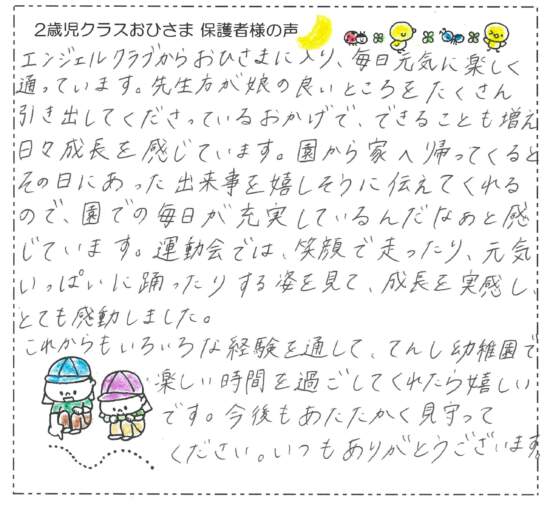 2歳児クラスおひさま 保護者様の声
エンジェルクラブからおひさまに入り、毎日元気に楽しく
通っています。先生方が娘の良いところをたくさん
引き出してくださっているおかげで、できることも増え
日々成長を感じています。園から家へ帰ってくると
その日にあった出来事を嬉しそうに伝えてくれる
ので、園での毎日が充実しているんだなぁと感
じています。運動会では、笑顔で走ったり、元気
いっぱいに踊ったりする姿を見て、成長を実感し、
とても感動しました。
これからもいろいろな経験を通して、てんし幼稚園で
楽しい時間を過ごしてくれたら嬉しい
です。今後もあたたかく見守って
ください。いつもありがとうございます。